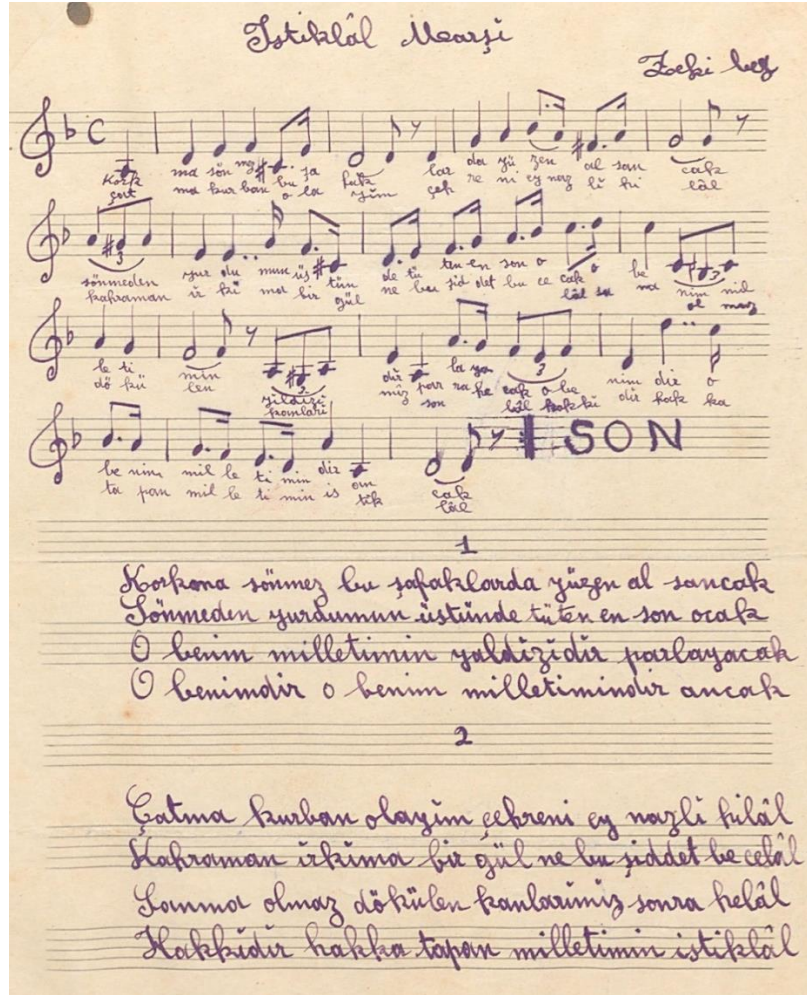 İstiklâl Marşi
Zeki beg
C
Kork ma sön mez bu şa fak lar da yü zen al san cak
çat ma kur ban o la yim çeh re ni ey naz li hi lâl
3
sönmeden yur du mun üs tün de tü ten en son o cak o be nim mil
kahraman ir ki ma bir gül ne bu şid det bu ce lâl sa na ol maz
3
le ti min yildizi dir par la ya cak o be nim dir o
dö kü len kanlari miz son ra he lâl hakki dir hak ka
3
be nim mil le ti min dir an cak SON
ta pan mil le ti min is tik lâl
1
Korkma sönmez bu şafaklarda yüzen al sancak
Sönmeden yurdumun üstünde tüten en son ocak
O benim milletimin yaldizidir parlayacak
O benimdir o benim milletimindir ancak
2
Çatma kurban olayim çehreni ey nazli hilâl
Kahraman irkima bir gül ne bu şiddet be celâl
Sanma olmaz dökülen kanlarimiz sonra helâl
Hakkidir hakka tapan milletimin istiklâl